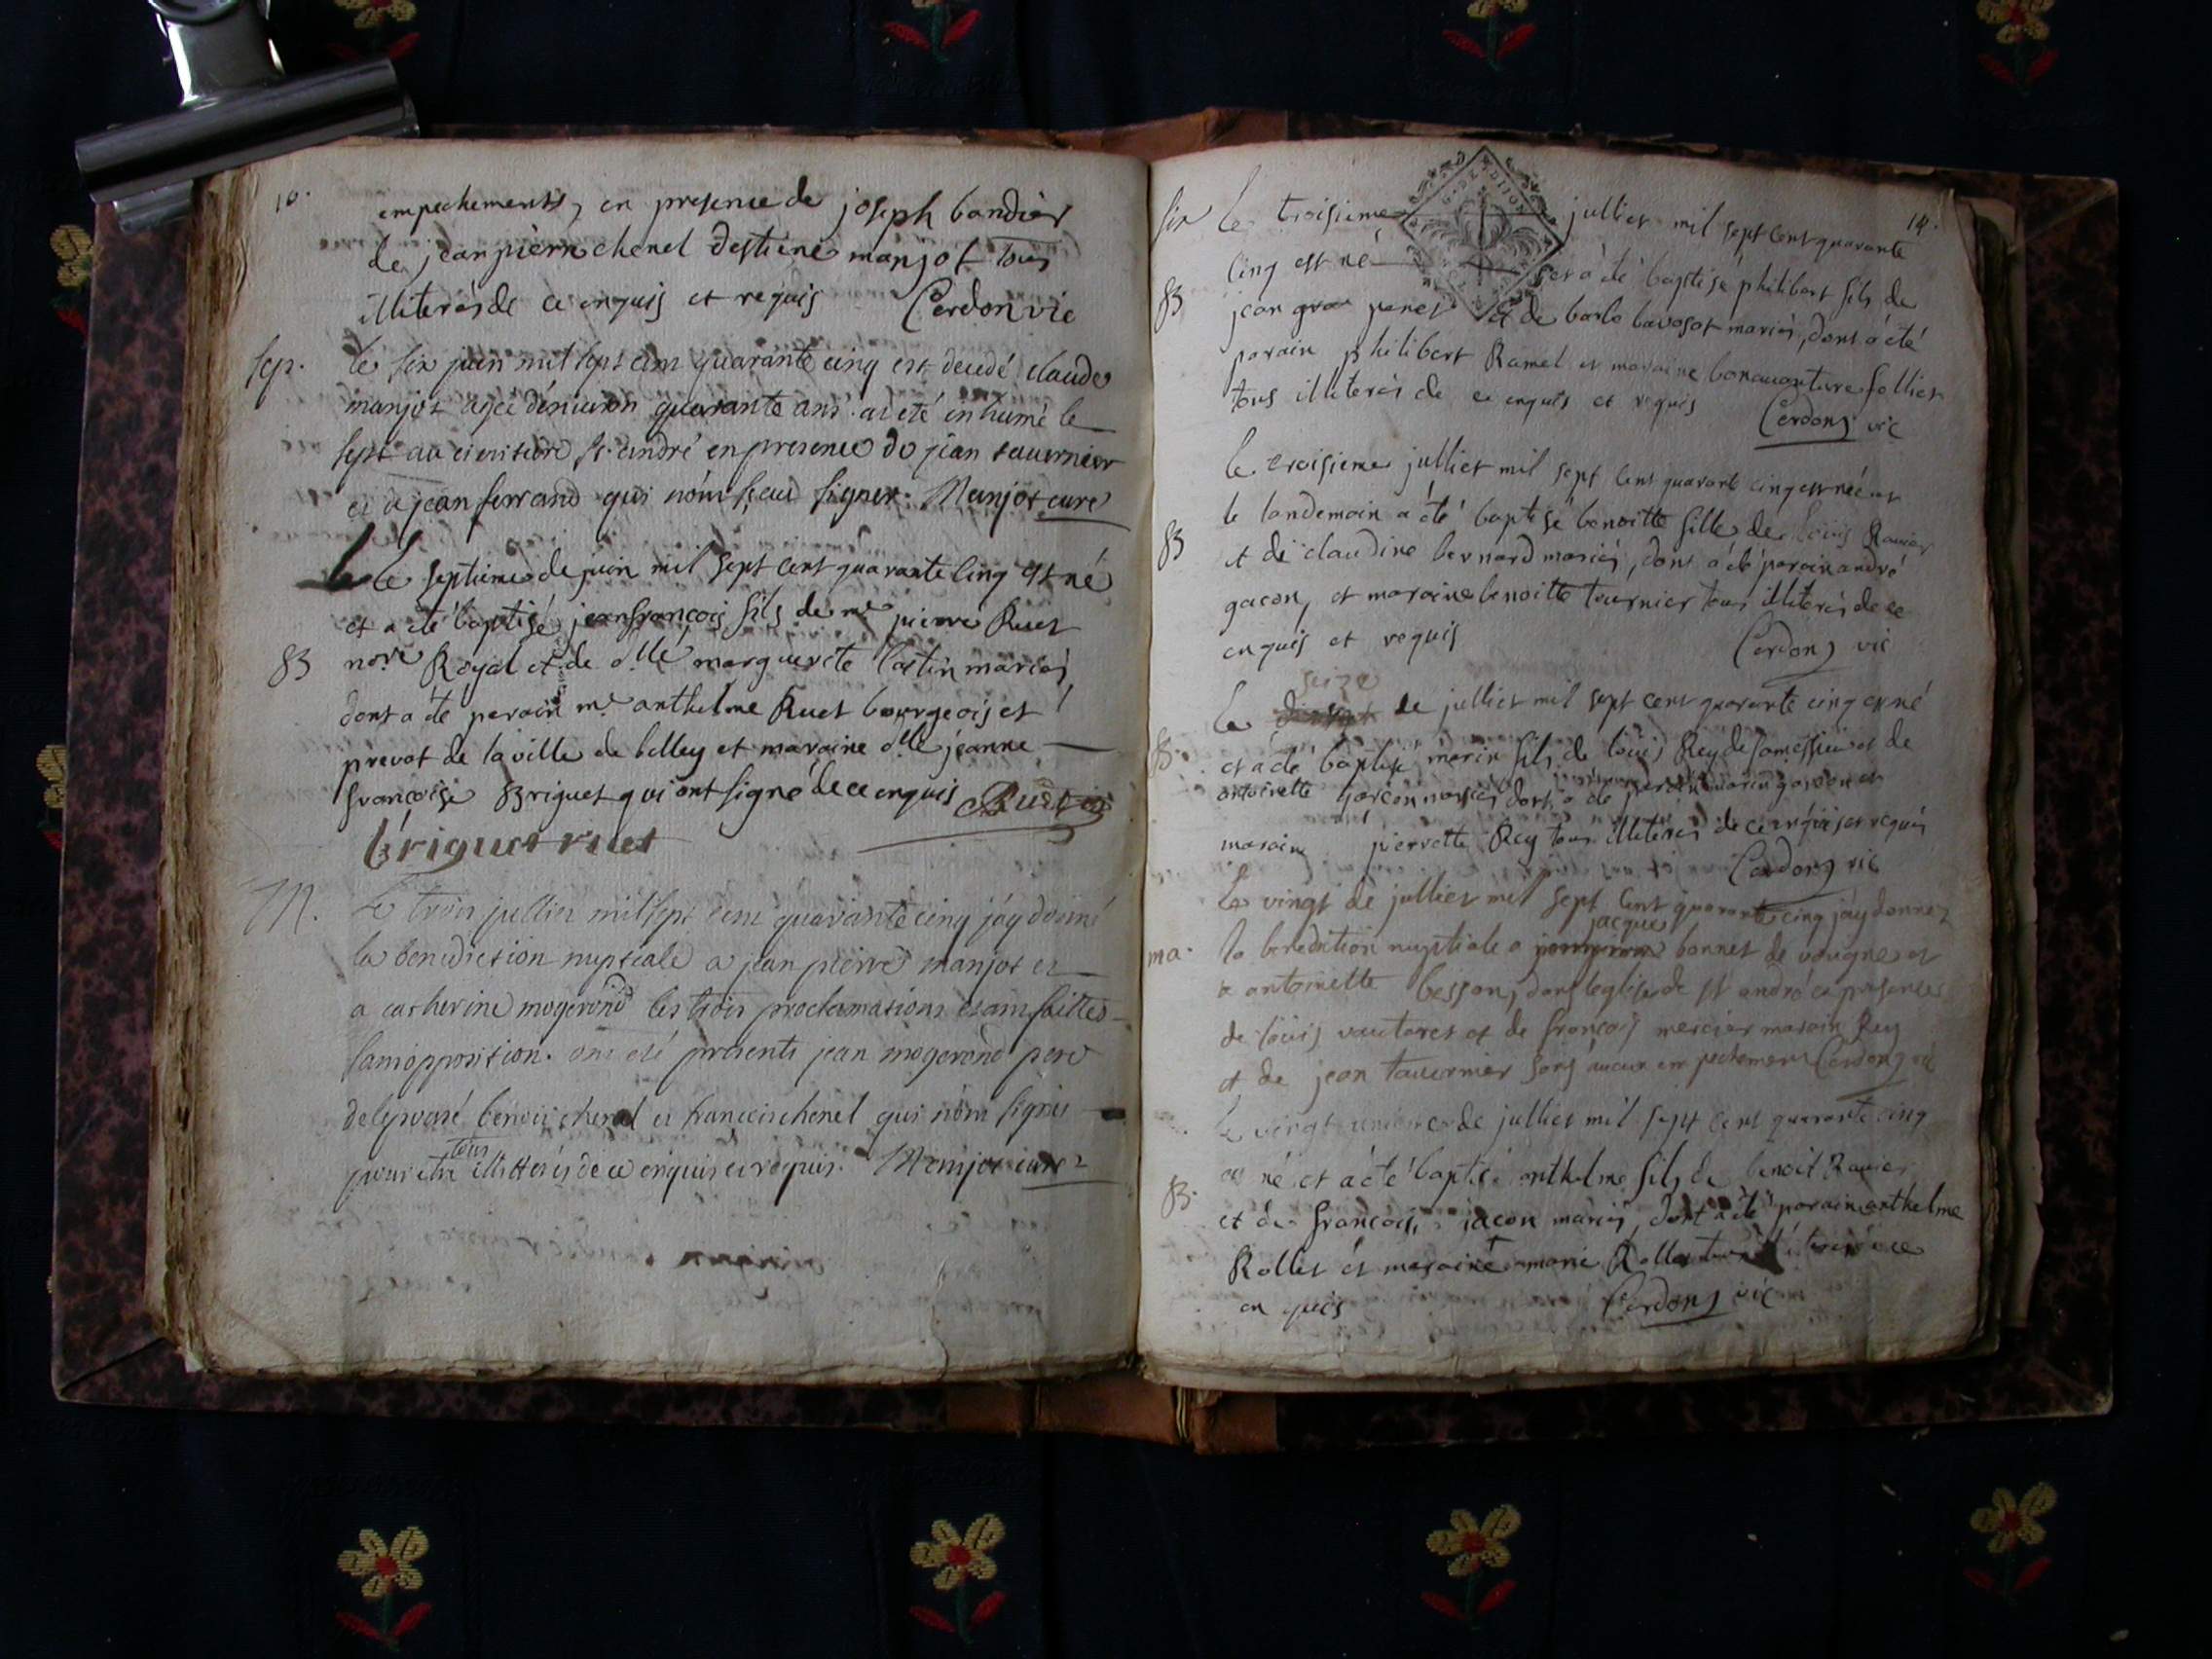 10.
empechements, en presence de joseph bandier
de jean pierre chenel destiene manjot tous
illiterés de ce enquis et requis Cerdon vic
sep. le six juin mil sept cent quarante cinq est decedé claude
manjot agé denviron quarante ans. a eté inhumé le
sept au cimitiere st. andré en presence de jean tavernier
et de jean ferrand qui n'ont sçeu signer. Manjot curé
Le septieme de juin mil sept cent quarante cinq est né
et a été baptisé jean françois fils de mre pierre Ruet
B nore Royal et de dlle marguerite mariés
dont a été parain mre anthelme Ruet bourgeois et
prevot de la ville de belley et maraine dlle jeanne
françoise Briguet qui ont signé de ce enquis Ruet
briguet ruet
M. Le trois jullier mil sept cent quarante cinq j'ay donné
la benediction nuptiale a jean pierre manjot et
a catherine mogerond les trois proclamations etant faittes
sans opposition. ont eté presents jean mogerond pere
de l'epousé benoit chenel et francois chenel qui n'ont signés
tous
pour etre illitterés de ce enquis et requis. Manjot curé
G. DE DIJON
six le troisieme jullier mil sept cent quarante 10.
cinq est né et a été baptisé philibert fils de
B jean panet et de mariés, dont a été
parain philibert Ramel et maraine bonaventure follier
tous illiterés de ce enquis et requis Cerdon vic
le troisieme jullier mil sept cent quarante cinq est née et
le landemain a été baptisé benoitte fille de louis Ravier
B et de claudine bernard mariés, dont a été parain andré
gacon, et maraine benoitte tournier tous illiterés de ce
enquis et requis Cerdon vic
seize
le de jullier mil sept cent quarante cinq est né
B. et a été baptisé marin fils de louis Rey de et de
antoinette mariés dont a été parain marin et
maraine pierrette Rey tous illiterés de ce enquis et requis
Cerdon vic
Le vingt de jullier mil sept cent quarante cinq j'ay donnez
jacque
ma. la benediction nuptiale a bonnet de et
a antoinette besson, dans leglise de st andré en presence
de louis et de françois mercier marain Rey
et de jean tavernier sans aucun empechement Cerdon vic
Le vingt unieme de jullier mil sept cent quarante cinq
est né et a été baptisé anthelme fils de benoit Ravier
B. et de françoise jacon mariés, dont a été parain anthelme
Rollet et maraine marie Rollet tous de ce
enquis Cerdon vic